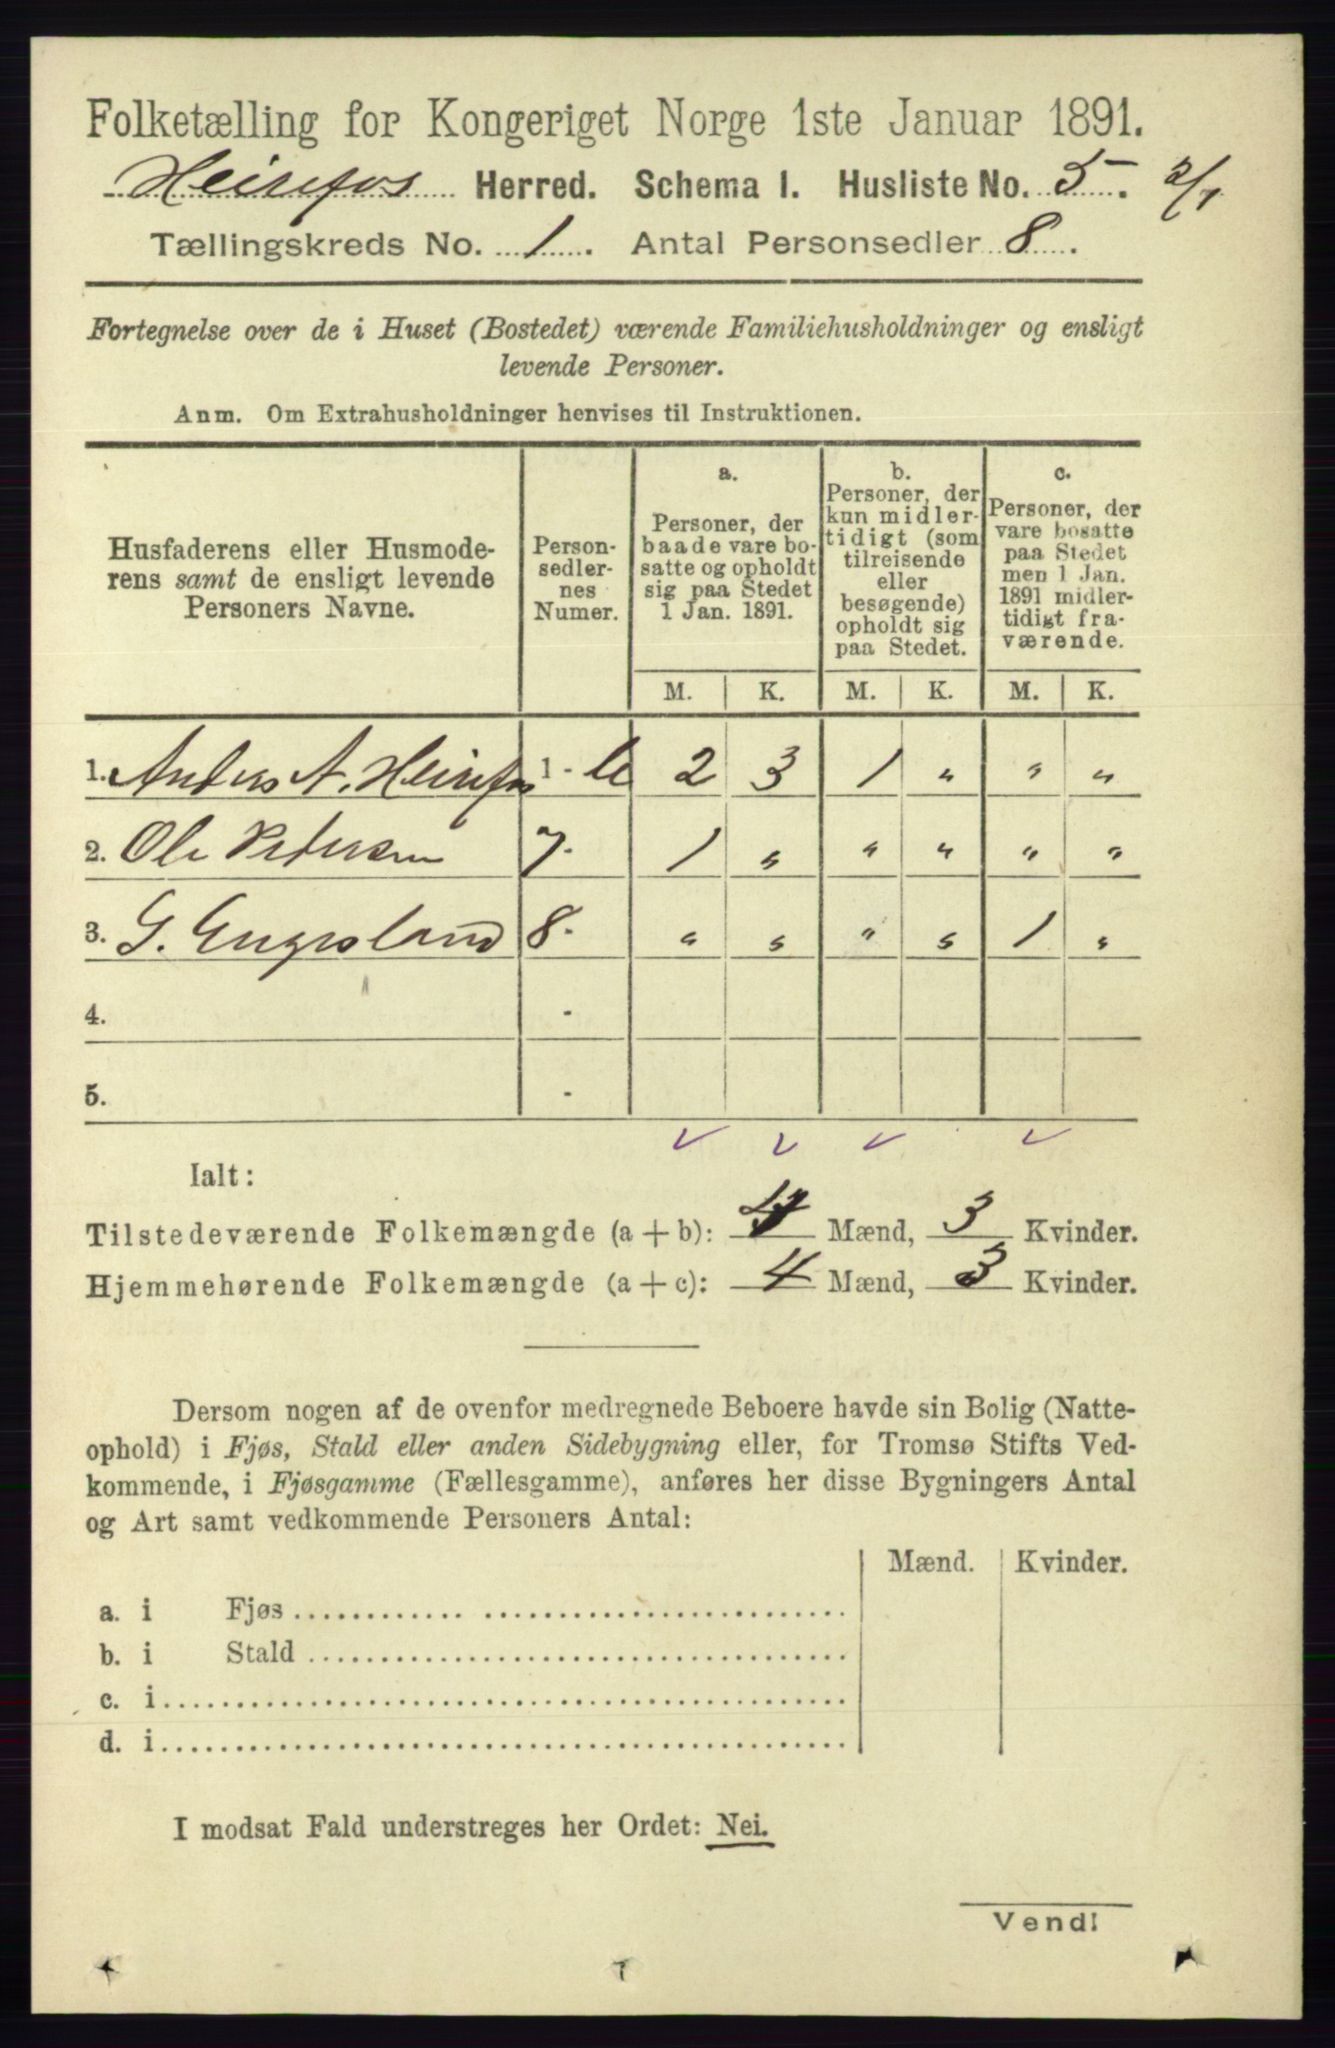 Folketælling for Kongeriget Norge 1ste Januar 1891.
Heirefos Herred. Schema 1. Husliste No. 5. 2/1
Tællingskreds No. 1. Antal Personsedler 8.
Fortegnelse over de i Huset (Bostedet) værende Familiehusholdninger og ensligt
levende Personer.
Anm. Om Extrahusholdninger henvises til Instruktionen.
Husfaderens eller Husmode-
rens samt de ensligt levende
Personers Navne.
Person-
sedler-
nes
Numer.
a.
Personer, der
baade vare bo-
satte og opholdt
sig paa Stedet
1 Jan. 1891.
b.
Personer, der
kun midler-
tidigt (som
tilreisende
eller
besøgende)
opholdt sig
paa Stedet.
c.
Personer, der
vare bosatte
paa Stedet
men 1 Jan.
1891 midler-
tidigt fra-
værende.
M. K. M. K. M. K.
1. Anders A. Heirefos 1 - 6 2 3 1 " " "
2. Ole Petersen 7. 1 " " " " "
3. G. Engesland 8. " " " " 1 "
4. -
5. -
Ialt:
Tilstedeværende Folkemængde (a + b): 4 Mænd, 3 Kvinder.
Hjemmehørende Folkemængde (a + c): 4 Mænd, 3 Kvinder.
Dersom nogen af de ovenfor medregnede Beboere havde sin Bolig (Natte-
ophold) i Fjøs, Stald eller anden Sidebygning eller, for Tromsø Stifts Ved-
kommende, i Fjøsgamme (Fællesgamme), anføres her disse Bygningers Antal
og Art samt vedkommende Personers Antal:
Mænd. Kvinder.
a. i Fjøs
b. i Stald
c. i
d. i
I modsat Fald understreges her Ordet: Nei.
Vend!